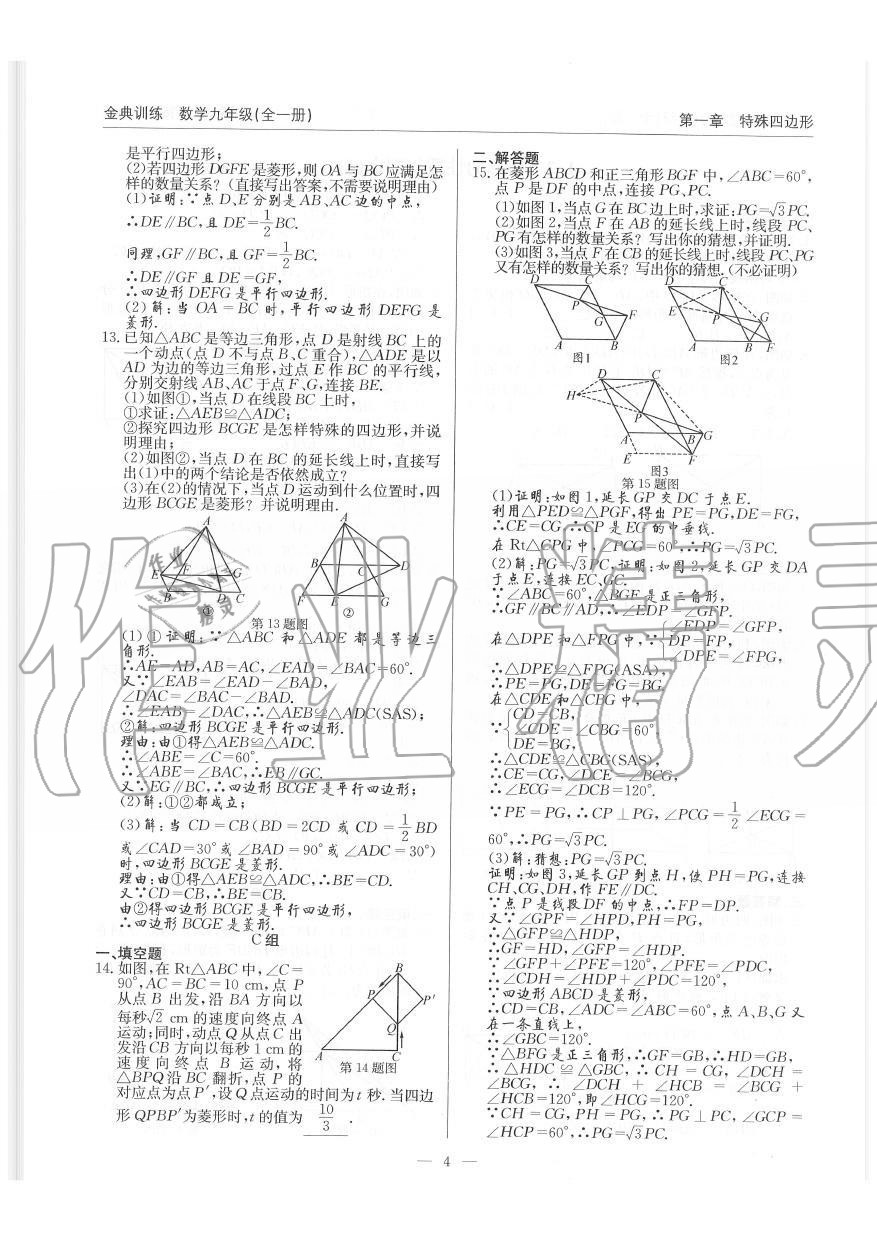 金典训练 数学九年级(全一册)
第一章 特殊四边形
是平行四边形;
(2)若四边形DGFE是菱形,则OA与BC应满足怎
样的数量关系?(直接写出答案,不需要说明理由)
(1)证明:∵点D、E分别是AB、AC边的中点,
∴DE∥BC,且DE=1/2BC.
同理,GF∥BC,且GF=1/2BC.
∴DE∥GF且DE=GF,
∴四边形DEFG是平行四边形.
(2)解:当OA=BC时,平行四边形DEFG是
菱形.
13.已知△ABC是等边三角形,点D是射线BC上的
一个动点(点D不与点B、C重合),△ADE是以
AD为边的等边三角形,过点E作BC的平行线,
分别交射线AB、AC于点F、G,连接BE.
(1)如图①,当点D在线段BC上时,
①求证:△AEB≌△ADC;
②探究四边形BCGE是怎样特殊的四边形,并说
明理由;
(2)如图②,当点D在BC的延长线上时,直接写
出(1)中的两个结论是否依然成立?
(3)在(2)的情况下,当点D运动到什么位置时,四
边形BCGE是菱形?并说明理由.
A
E F G
B D C
①
A
B C D
F E G
②
第13题图
(1)①证明:∵△ABC和△ADE都是等边三
角形.
∴AE=AD,AB=AC,∠EAD=∠BAC=60°.
又∵∠EAB=∠EAD-∠BAD,
∠DAC=∠BAC-∠BAD.
∴∠EAB=∠DAC,∴△AEB≌△ADC(SAS);
②解:四边形BCGE是平行四边形.
理由:由①得△AEB≌△ADC.
∴∠ABE=∠C=60°.
∴∠ABE=∠BAC,∴EB∥GC.
又∵EG∥BC,∴四边形BCGE是平行四边形;
(2)解:①②都成立;
(3)解:当CD=CB(BD=2CD或CD=1/2BD
或∠CAD=30°或∠BAD=90°或∠ADC=30°)
时,四边形BCGE是菱形.
理由:由①得△AEB≌△ADC,∴BE=CD.
又∵CD=CB,∴BE=CB.
由②得四边形BCGE是平行四边形,
∴四边形BCGE是菱形.
C组
一、填空题
14.如图,在Rt△ABC中,∠C=
90°,AC=BC=10 cm,点P
从点B出发,沿BA方向以
每秒√2 cm的速度向终点A
运动;同时,动点Q从点C出
发沿CB方向以每秒1 cm的
速度向终点B运动,将
△BPQ沿BC翻折,点P的
B
P P′
Q
A C
第14题图
对应点为点P′,设Q点运动的时间为t秒.当四边
形QPBP′为菱形时,t的值为 10/3 .
二、解答题
15.在菱形ABCD和正三角形BGF中,∠ABC=60°,
点P是DF的中点,连接PG、PC.
(1)如图1,当点G在BC边上时,求证:PG=√3PC.
(2)如图2,当点F在AB的延长线上时,线段PC、
PG有怎样的数量关系?写出你的猜想,并证明.
(3)如图3,当点F在CB的延长线上时,线段PC、PG
又有怎样的数量关系?写出你的猜想.(不必证明)
D C
P G F
A B
图1
D C
E P G
A B F
图2
D C
H
P
A B G
E F
图3
第15题图
(1)证明:如图1,延长GP交DC于点E.
利用△PED≌△PGF,得出PE=PG,DE=FG,
∴CE=CG,∴CP是EG的中垂线.
在Rt△CPG中,∠PCG=60°,∴PG=√3PC.
(2)解:PG=√3PC,证明:如图2,延长GP交DA
于点E,连接EC、GC.
∵∠ABC=60°,△BGF是正三角形,
∴GF∥BC∥AD,∴∠EDP=∠GFP.
在△DPE和△FPG中,∵{∠EDP=∠GFP,
DP=FP,
∠DPE=∠FPG,
∴△DPE≌△FPG(ASA),
∴PE=PG,DE=FG=BG,
在△CDE和△CBG中,
∵{CD=CB,
∠CDE=∠CBG=60°
DE=BG,
∴△CDE≌△CBG(SAS),
∴CE=CG,∠DCE=∠BCG,
∴∠ECG=∠DCB=120°.
∵PE=PG,∴CP⊥PG,∠PCG=1/2∠ECG=
60°,∴PG=√3PC.
(3)解:猜想:PG=√3PC.
证明:如图3,延长GP到点H,使PH=PG,连接
CH、CG、DH,作FE∥DC.
∵点P是线段DF的中点,∴FP=DP.
又∵∠GPF=∠HPD,PH=PG,
∴△GFP≌△HDP,
∴GF=HD,∠GFP=∠HDP.
∵∠GFP+∠PFE=120°,∠PFE=∠PDC,
∴∠CDH=∠HDP+∠PDC=120°,
∵四边形ABCD是菱形,
∴CD=CB,∠ADC=∠ABC=60°,点A、B、G又
在一条直线上,
∴∠GBC=120°.
∵△BFG是正三角形,∴GF=GB,∴HD=GB,
∴△HDC≌△GBC,∴CH=CG,∠DCH=
∠BCG,∴∠DCH+∠HCB=∠BCG+
∠HCB=120°,即∠HCG=120°.
∵CH=CG,PH=PG,∴PG⊥PC,∠GCP=
∠HCP=60°,∴PG=√3PC.
— 4 —